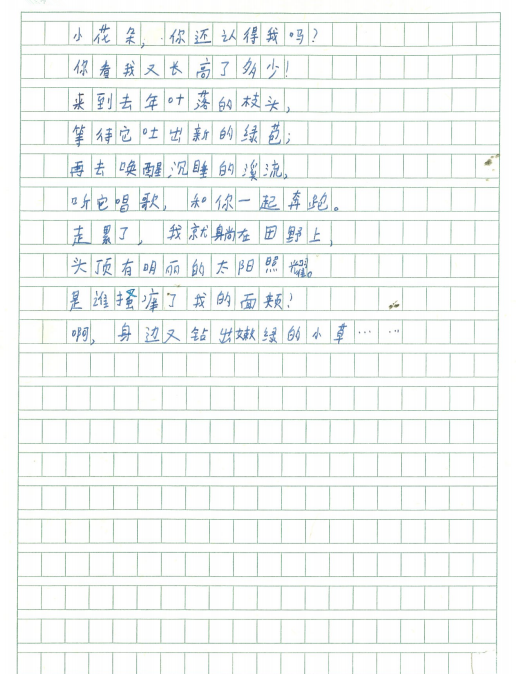 小花朵，你还认得我吗？
你看我又长高了多少！
来到去年叶落的枝头，
等待它吐出新的绿苞；
再去唤醒沉睡的溪流，
听它唱歌，和你一起奔跑。
走累了，我就躺在田野上，
头顶有明丽的太阳照耀。
是谁搔痒了我的面颊？
啊，身边又钻出嫩绿的小草……